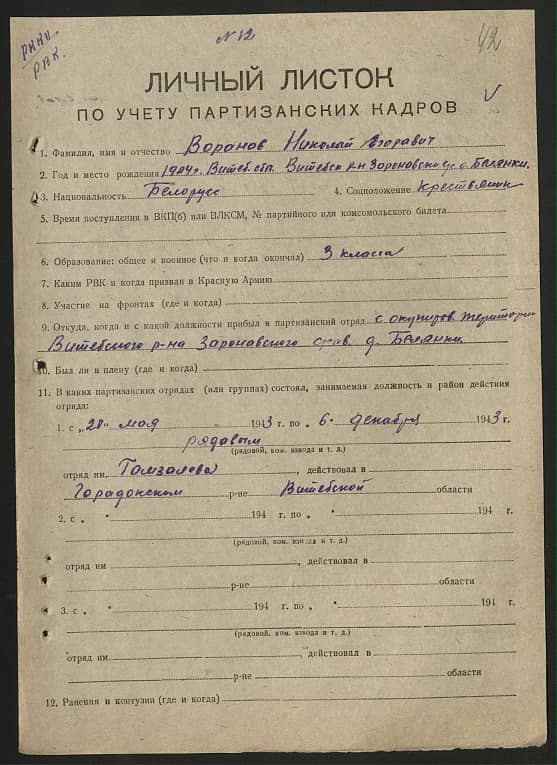 № 12
42
РВК.
ЛИЧНЫЙ ЛИСТОК
ПО УЧЕТУ ПАРТИЗАНСКИХ КАДРОВ
1. Фамилия, имя и отчество Воронов Николай Егоравич
2. Год и место рождения 1904 г. Витеб. обл. Витебск р-н Зароновский с/с д. Белянки.
3. Национальность Белорусс 4. Соцположение Крестьянин
5. Время поступления в ВКП(б) или ВЛКСМ, № партийного или комсомольского билета
6. Образование: общее и военное (что и когда окончил) 3 класса
7. Каким РВК и когда призван в Красную Армию
8. Участие на фронтах (где и когда)
9. Откуда, когда и с какой должности прибыл в партизанский отряд с окупиров. територии
Витебского р-на Зароновского д. Белянки.
10. Был ли в плену (где и когда)
11. В каких партизанских отрядах (или группах) состоял, занимаемая должность и район действия
отряда:
1. с „20" мая 1943 г. по „6" декабря 1943 г.
рядовым
(рядовой, ком. взвода и т. д.)
отряд им. , действовал в
Гарадокском р-не Витебской области
2. с „ " 194 г. по „ " 194 г.
(рядовой, ком. взвода и т. д.)
отряд им , действовал в
р-не области
3. с „ " 194 г. по „ " 194 г.
(рядовой, ком. взвода и т. д.)
отряд им. , действовал в
р-не области
12. Ранения и контузии (где и когда)